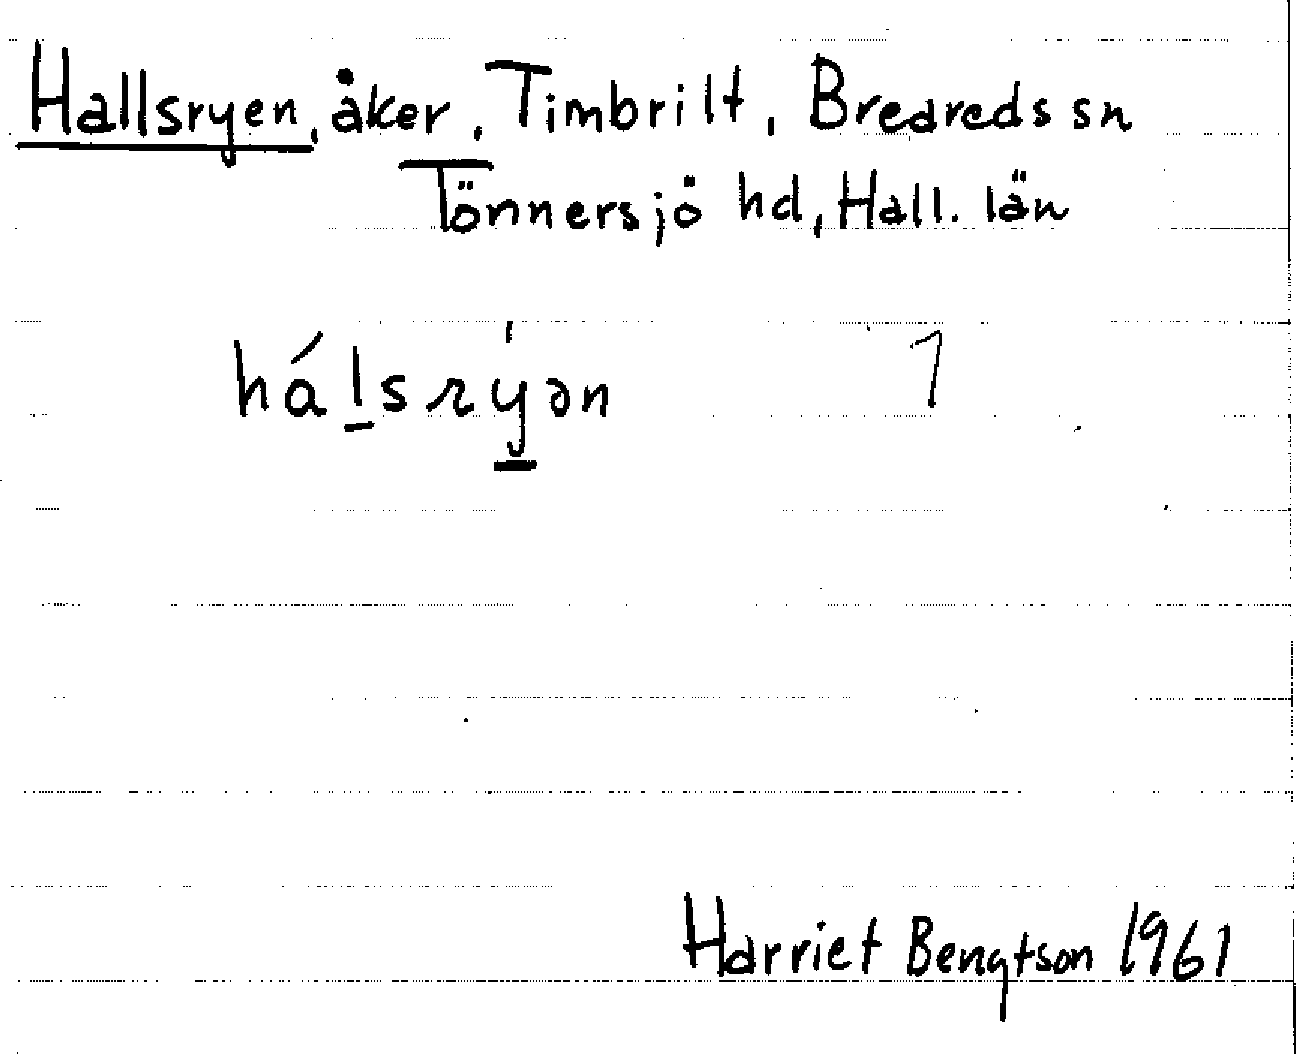 Hallsryen, åker, Timbrilt, Breareds sn
Tönnersjö hd, Hall. län
háḻsrý̱ən 1
Harriet Bengtson 1961